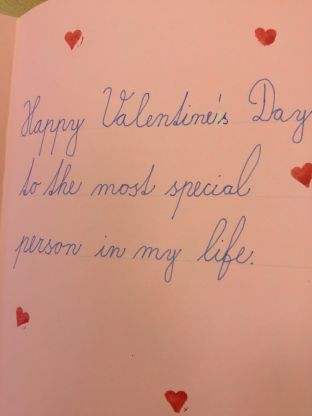 Happy Valentine's Day
to the most special
person in my life.